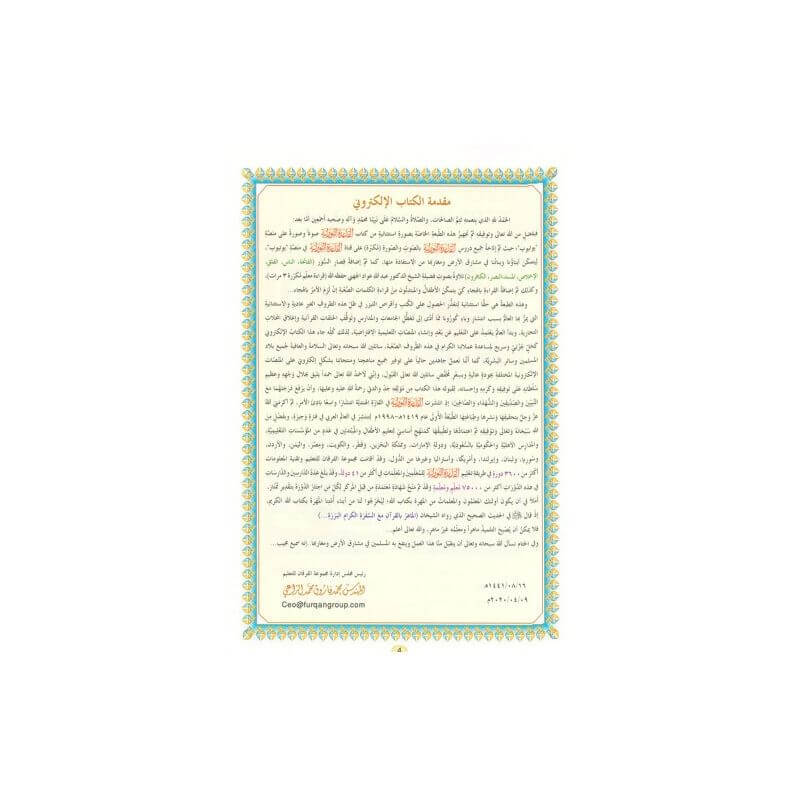 مقدمة الكتاب الإلكتروني
الحمد لله الذي بنعمته تتم الصالحات، والصلاة والسلام على نبينا محمد وآله وصحبه أجمعين أما بعد:
فبفضل من الله تعالى وتوفيقه تم تجهيز هذه الطبعة الخاصة بصورة استثنائية من كتاب القاعدة النورانية صوتاً وصورة على منصة
"يوتيوب"، حيث تم إتاحة جميع دروس القاعدة النورانية بالصوت والصورة (مكررة) على قناة القاعدة النورانية في منصة "يوتيوب"،
ليتمكن أبناؤنا وبناتنا في مشارق الأرض ومغاربها من الاستفادة منها. كما تم إضافة قصار السور (الفاتحة، الناس، الفلق،
الإخلاص، المسد، النصر، الكافرون) بتلاوة بصوت فضيلة الشيخ الدكتور عبد الله عواد الجهني حفظه الله (قراءة معلم مكررة ٣ مرات)،
وكذلك تم إضافة القراءة بالهجاء كي يتمكن الأطفال والمبتدئون من قراءة الكلمات الصعبة إن لزم الأمر بالهجاء.
وهذه الطبعة هي حقاً استثنائية لتعذر الحصول على الكتب وأقراص الليزر في ظل هذه الظروف الغير عادية والاستثنائية
التي يمر بها العالم بسبب انتشار وباء كورونا مما أدى إلى تعطل الجامعات والمدارس وتوقف الحلقات القرآنية وإغلاق المحلات
التجارية. وبدأ العالم يعتمد على التعليم عن بعد وإنشاء المنصات التعليمية الافتراضية، لذلك كله جاء هذا الكتاب الإلكتروني
كحل جزئي وسريع لمساعدة عملائنا الكرام في هذه الظروف الصعبة. سائلين الله سبحانه وتعالى السلامة والعافية لجميع بلاد
المسلمين وسائر البشرية. كما أننا نعمل جاهدين حالياً على توفير جميع مناهجنا ومنتجاتنا بشكل إلكتروني على المنصات
الإلكترونية المختلفة بجودة عالية وبسعر مخفض سائلين الله تعالى القبول. وإني لأحمد الله تعالى حمداً يليق بجلال وجهه وعظيم
سلطانه على توفيقه وكرمه وإحسانه، لقبوله هذا الكتاب من مؤلفه جد والدتي رحمة الله عليه وعليها، وأن يرفع درجتهما مع
النبيين والصديقين والشهداء والصالحين؛ إذ انتشرت القاعدة النورانية في القارة الهندية انتشاراً واسعاً بادئ الأمر. ثم أكرمني الله
عز وجل بتحقيقها ونشرها وطباعتها الطبعة الأولى عام ١٤١٩هـ-١٩٩٨م لتنتشر في العالم العربي في فترة وجيزة. وبفضل من
الله سبحانه وتعالى وتوفيقه تم اعتمادها وتطبيقها كمنهج أساسي لتعليم الأطفال والمبتدئين في عدد من المؤسسات التعليمية،
والمدارس الأهلية والحكومية بالسعودية، ودولة الإمارات، ومملكة البحرين، وقطر، والكويت، ومصر، واليمن، والأردن،
وسوريا، ولبنان، وإيرلندا، وأمريكا، وأستراليا وغيرها من الدول. وقد أقامت مجموعة الفرقان للتعليم وتقنية المعلومات
أكثر من ٣٦٠٠ دورة في طريقة تعليم القاعدة النورانية للمعلمين والمعلمات في أكثر من ٤١ دولة، وقد بلغ عدد الدارسين والدارسات
في هذه الدورات أكثر من ٧٥٠٠٠ معلم ومعلمة وقد تم منح شهادة معتمدة من قبل المركز لكل من اجتاز الدورة بتقدير ممتاز.
آملاً في أن يكون أولئك المعلمون والمعلمات من المهرة بكتاب الله؛ ليخرجوا لنا من أبناء أمتنا المهرة بكتاب الله الكريم.
إذ قال ﷺ في الحديث الصحيح الذي رواه الشيخان (الماهر بالقرآن مع السفرة الكرام البررة...)
فلا يمكن أن يصبح التلميذ ماهراً ومعلمه غير ماهر. والله تعالى أعلم..
وفي الختام نسأل الله سبحانه وتعالى أن يتقبل منا هذا العمل وينفع به المسلمين في مشارق الأرض ومغاربها. إنه سميع مجيب...
رئيس مجلس إدارة مجموعة الفرقان للتعليم
١٤٤١/٠٨/١٦هـ
المهندس محمد فاروق محمد الراعي
٢٠٢٠/٠٤/٠٩م
Ceo@furqangroup.com
4